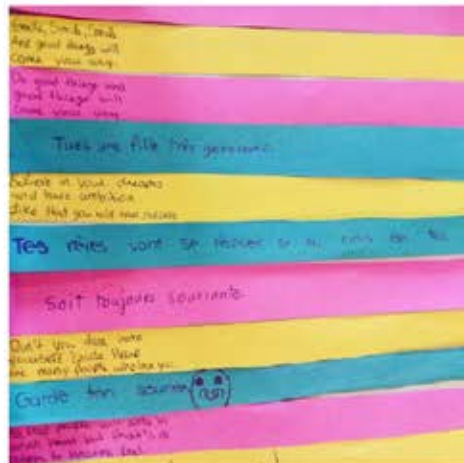 Smile, Smile, Smile
And good things will
come your way.
Do good things and
good things will
come your way
Tu es une fille très
Believe in your dreams
and have ambition
like that you will have success
Tes rêves vont se réaliser si tu crois en toi
Soit toujours souriante
Don't you dare hate
yourself cause there
are many people who love you
Garde ton sourire